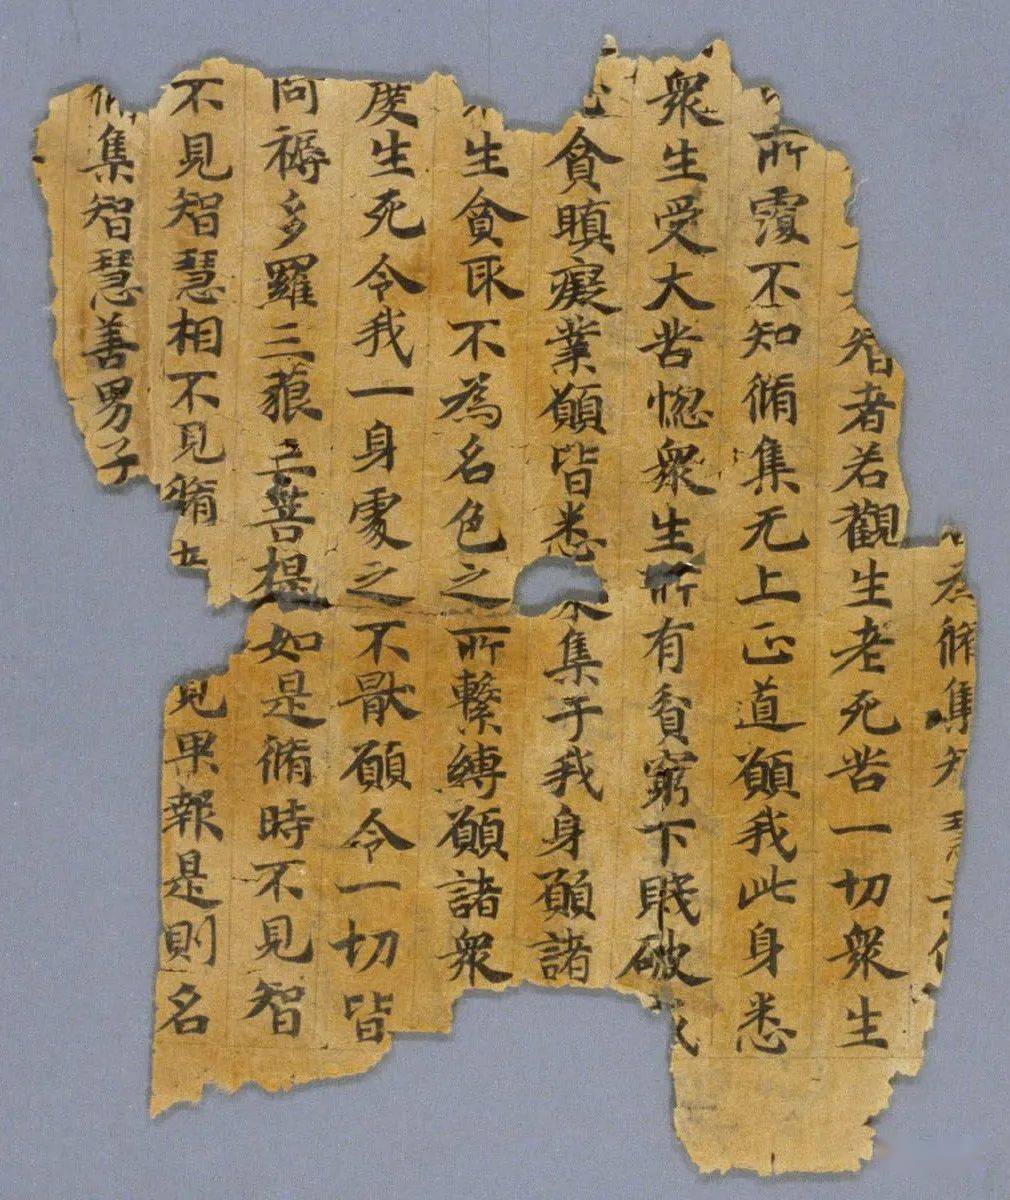 為脩集智
智者若觀生老死苦一切衆生
所覆不知脩集无上正道願我此身悉
衆生受大苦惱衆生所有貧窮下賤破
貪瞋癡業願皆悉來集于我身願諸
生貪取不為名色之所繫縛願諸衆
度生死令我一身處之不猒願令一切皆
阿耨多羅三藐三菩提如是脩時不見智
不見智慧相不見脩 見果報是則名
脩集智慧善男子